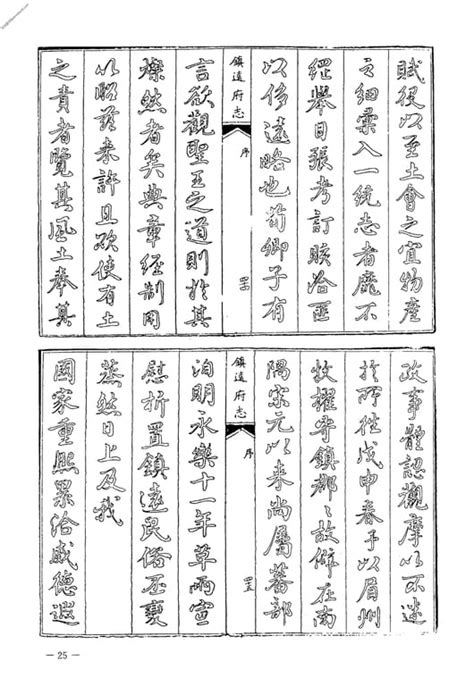 賦役以至土會之宜物產
之細彙入一統志者靡不
綱舉目張考訂賅洽匪
以侈遠略也荀卿子有
鎮遠府志 序 四四
言欲觀聖王之道則於其
燦然者矣典章經制周
以昭茲來許且欲使有土
之責者覽其風土奉其
政事體認觀摩以不迷
於所往戊申春予以眉州
牧擢守鎮郡〻故僻在南
隅宋元以來尚屬蕃部
鎮遠府志 序 四五
洎明永樂十一年革兩宣
慰折置鎮遠民俗丕變
蒸然日上及我
國家重熙累洽盛德遐
— 25 —